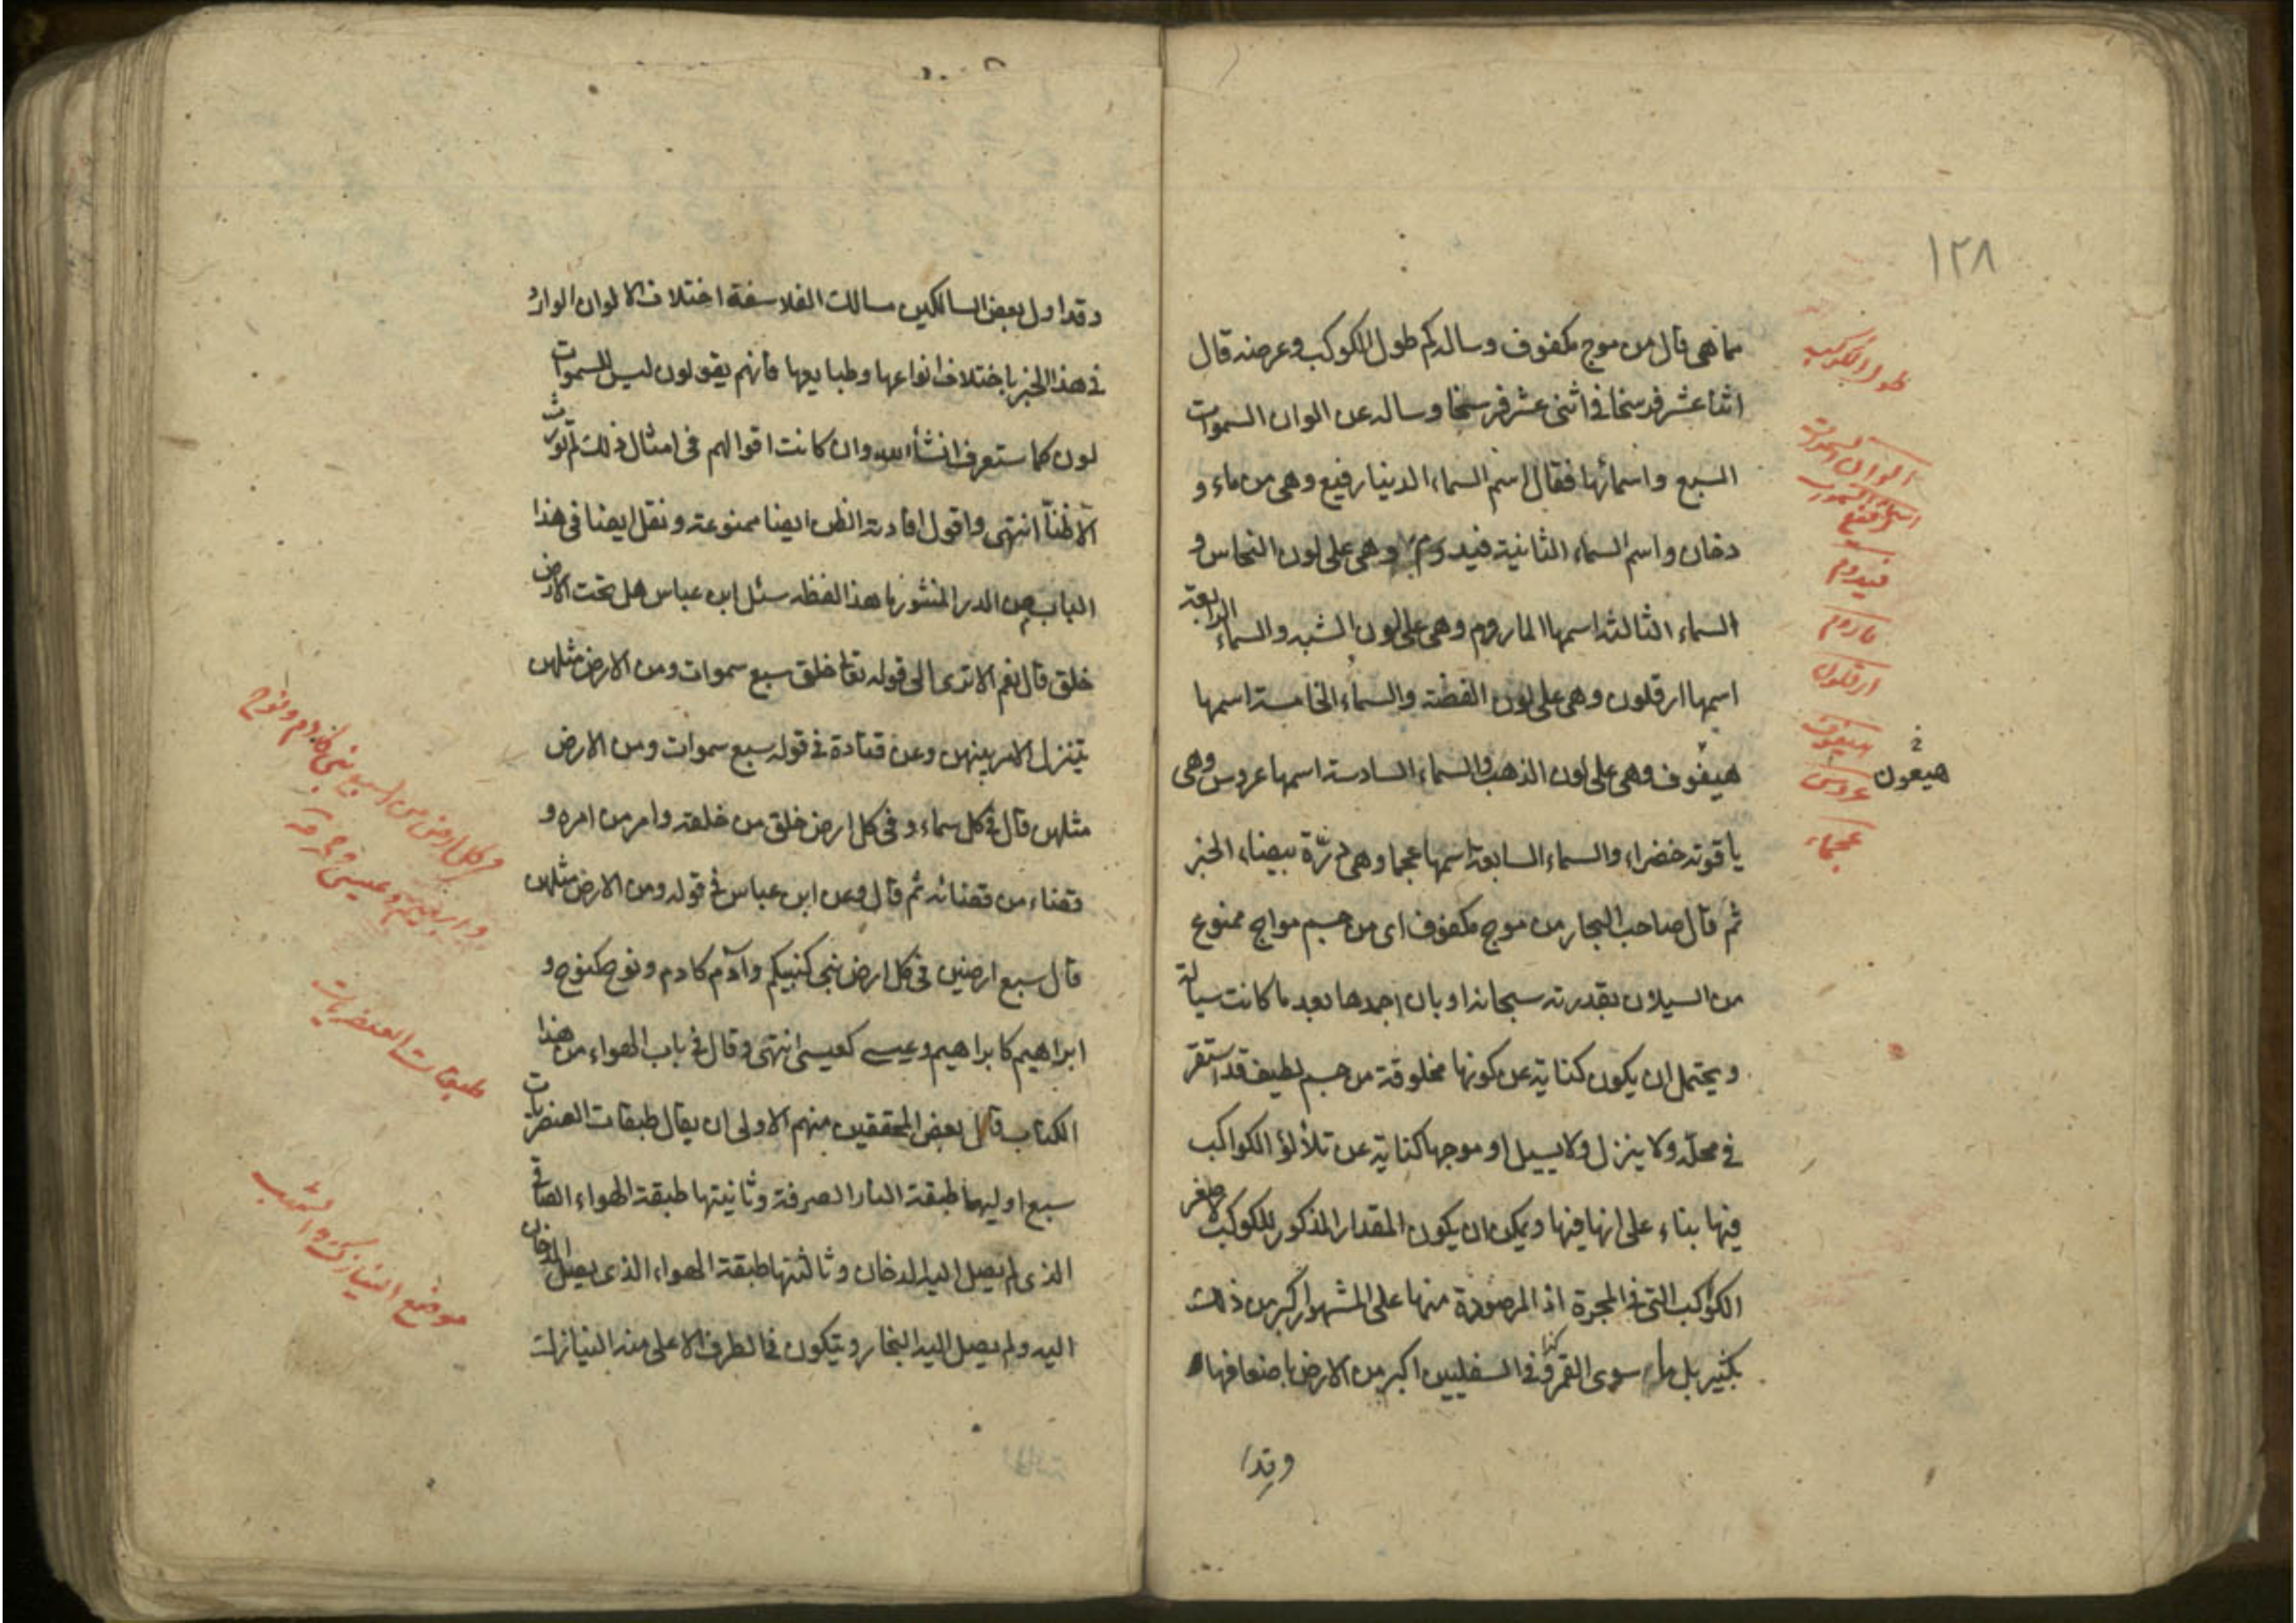 ١٢٨
مما هى قال من موج مكفوف وساله كم طول الكوكب وعرضه قال
اثنا عشر فرسخا فى اثنى عشر فرسخا وساله عن الوان السموات
السبع واسمائها فقال اسم السماء الدنيا رفيع وهى من ماء و
دخان واسم السماء الثانية فيدوم وهى على لون النحاس و
السماء الثالثة اسمها الماروم وهى على لون الشبه والسماء الرابعة
اسمها ارقلون وهى على لون الفضة والسماء الخامسة اسمها
هيفوف وهى على لون الذهب والسماء السادسة اسمها عروس وهى
ياقوتة خضراء والسماء السابعة اسمها عجما وهى درّة بيضاء الخبر
ثم قال صاحب البحار من موج مكفوف اى من جسم مواج ممنوع
من السيلان بقدرته سبحانه او بان اجمدها بعد ما كانت سيالة
ويحتمل ان يكون كناية عن كونها مخلوقة من جسم لطيف قد استقر
فى محله ولا ينزل ولا يسيل او موجها كناية عن تلألؤ الكواكب
فيها بناء على انها فيها ويمكن ان يكون المقدار المذكور للكوكب لاصغر
الكواكب التى فى المجرة اذ المرصودة منها على المشهور اكبر من ذلك
بكثير بل ما سوى القمر وكذا فى السفليين اكبر من الارض باضعافها
وقد ا
طول الكوكب
الوان السموات
اسماء السموات
رفيع
فيدوم
ماروم
ارقلون
هيفوف
هيعون خ
عروس
عجماء
وقد اول بعض السالكين مسالك الفلاسفة اختلاف الالوان الوارد
فى هذا الخبر باختلاف انواعها وطبايعها فانهم يقولون ليس للسموات
لون كما ستعرف انشأ الله وان كانت اقوالهم فى امثال ذلك لم تورث
الا ظنّا انتهى واقول افادته الظن ايضا ممنوعة ونقل ايضا فى هذا
الباب من الدر المنثور ما هذا لفظه سئل ابن عباس هل تحت الارض
خلق قال نعم الا ترى الى قوله تعالى خلق سبع سموات ومن الارض مثلهن
يتنزل الامر بينهن وعن قتادة فى قوله سبع سموات ومن الارض
مثلهن قال فى كل سماء و فى كل ارض خلق من خلقه وامر من امره و
قضاء من قضائه ثم قال وعن ابن عباس فى قوله ومن الارض مثلهن
قال سبع ارضين فى كل ارض نبى كنبيكم وآدم كادم ونوح كنوح و
ابراهيم كابراهيم وعيسى كعيسى انتهى وقال فى باب الهواء من هذا
الكتاب قال بعض المحققين منهم الاولى ان يقال طبقات العنصريات
سبع اوليهما طبقة النار الصرفة وثانيتها طبقة الهواء الصافى
الذى لم يصل اليه الدخان وثالثتها طبقة الهواء الذى يصل الدخان
اليه ولم يصل اليه البخار ويتكون فى الطرف الاعلى منه النيازك
فى كل ارض من السبع نبى كادم ونوح
وابراهيم وعيسى و
طبقات العنصريات
موضع النيازك والشهب